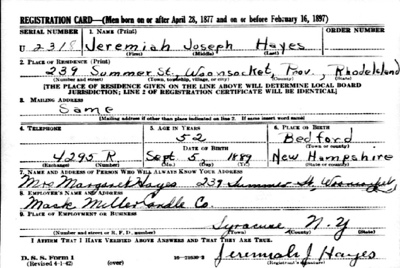 REGISTRATION CARD—(Men born on or after April 28, 1877 and on or before February 16, 1897)
SERIAL NUMBER 1. NAME (Print) ORDER NUMBER
U 2318 Jeremiah Joseph Hayes
(First) (Middle) (Last)
2. PLACE OF RESIDENCE (Print)
239 Summer St., Woonsocket, Prov., Rhode Island
(Number and street) (Town, township, village, or city) (County) (State)
[THE PLACE OF RESIDENCE GIVEN ON THE LINE ABOVE WILL DETERMINE LOCAL BOARD
JURISDICTION; LINE 2 OF REGISTRATION CERTIFICATE WILL BE IDENTICAL]
3. MAILING ADDRESS
Same
[Mailing address if other than place indicated on line 2. If same insert word same]
4. TELEPHONE 5. AGE IN YEARS 6. PLACE OF BIRTH
52 Bedford
DATE OF BIRTH (Town or county)
4295 R Sept. 5, 1889 New Hampshire
(Exchange) (Number) (Mo.) (Day) (Yr.) (State or country)
7. NAME AND ADDRESS OF PERSON WHO WILL ALWAYS KNOW YOUR ADDRESS
Mrs Margaret Hayes 239 Summer St, Woonsocket
8. EMPLOYER'S NAME AND ADDRESS
Mack Miller Candle Co.
9. PLACE OF EMPLOYMENT OR BUSINESS
Syracuse N. Y
(Number and street or R. F. D. number) (Town) (County) (State)
I AFFIRM THAT I HAVE VERIFIED ABOVE ANSWERS AND THAT THEY ARE TRUE.
D. S. S. Form 1 Jeremiah J Hayes
(Revised 4-1-42) (over) (Registrant's signature)